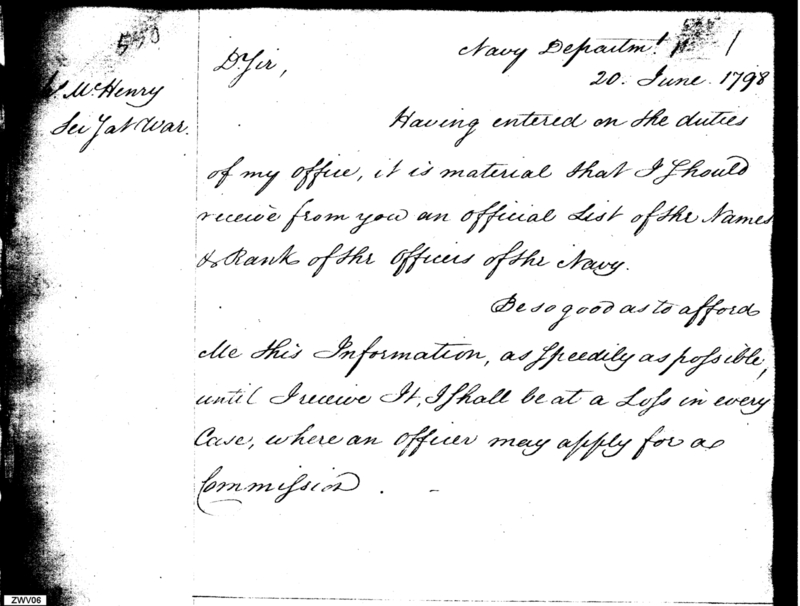 Navy Departmt.
20. June. 1798
McHenry
Secy at War.
Dr Sir,
Having entered on the duties
of my office, it is material that I should
receive from you an official List of the Names
& Rank of the Officers of the Navy.
Be so good as to afford
Me this Information, as speedily as possible,
until I receive It, I shall be at a Loss in every
Case, where an officer may apply for a
Commission. -
ZWV06